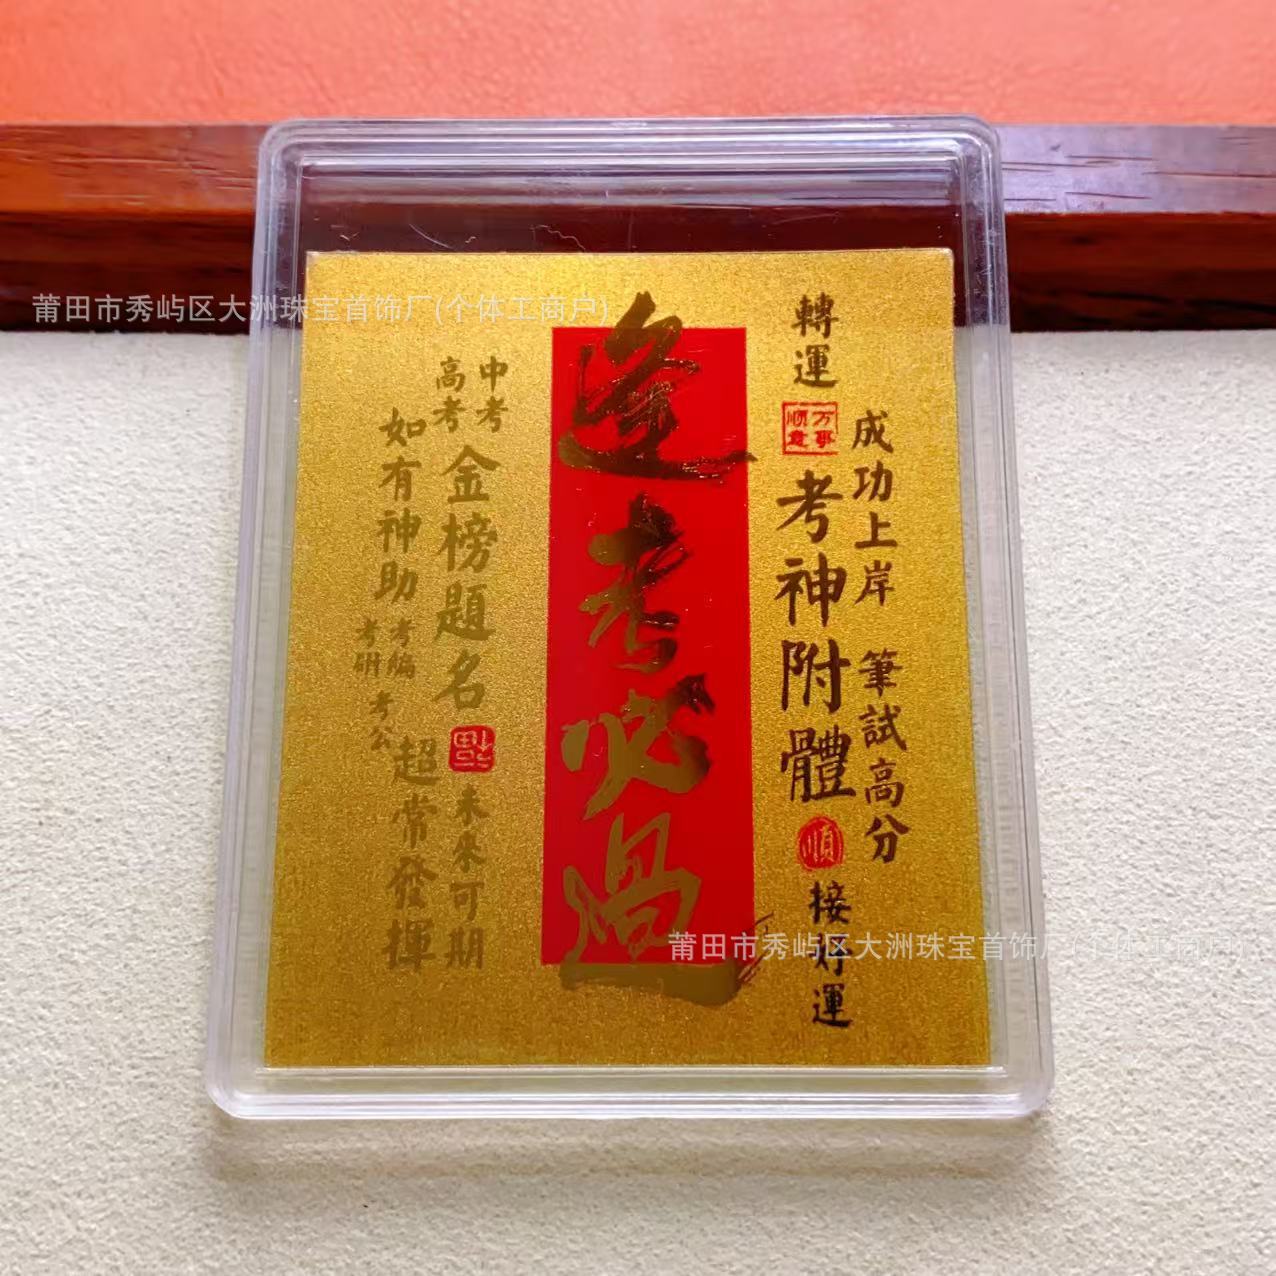 莆田市秀屿区大洲珠宝首饰厂(个体工商户)
成功上岸 筆試高分
轉運
万事
順意
考神附體
順
接好運
逢考必過
中考
高考
金榜題名
福
未來可期
如有神助
考編
考研
考公
超常發揮
莆田市秀屿区大洲珠宝首饰厂(个体工商户)